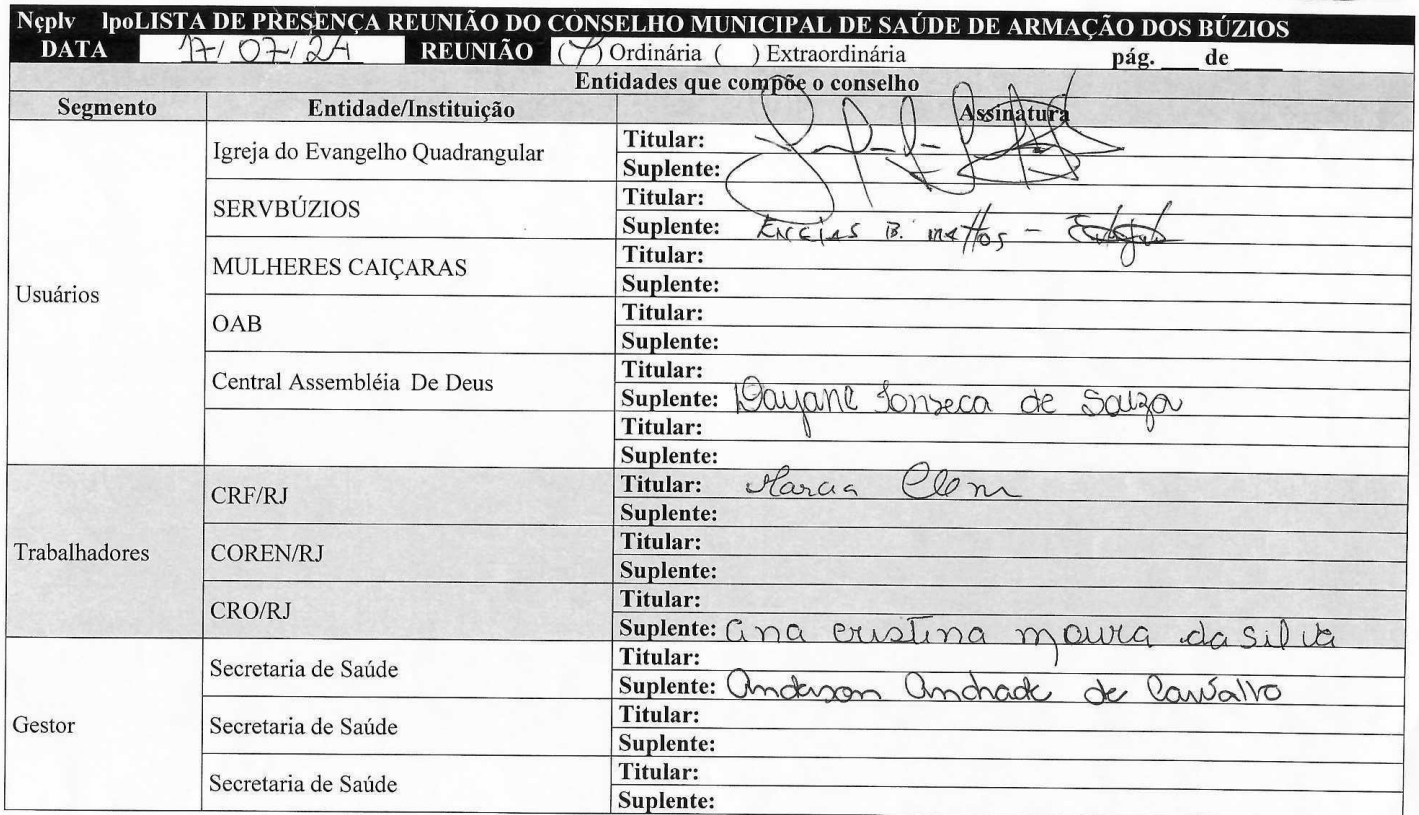 Nçplv lpoLISTA DE PRESENÇA REUNIÃO DO CONSELHO MUNICIPAL DE SAÚDE DE ARMAÇÃO DOS BÚZIOS
DATA 17/07/24 REUNIÃO (X) Ordinária ( ) Extraordinária pág. ___ de ____
Entidades que compõe o conselho
Segmento Entidade/Instituição Assinatura
Usuários
Igreja do Evangelho Quadrangular
Titular:
Suplente:
SERVBÚZIOS
Titular:
Suplente: B. mattos -
MULHERES CAIÇARAS
Titular:
Suplente:
OAB
Titular:
Suplente:
Central Assembléia De Deus
Titular:
Suplente: Dayane Fonseca de Souza
Titular:
Suplente:
Trabalhadores
CRF/RJ
Titular: Marcia
Suplente:
COREN/RJ
Titular:
Suplente:
CRO/RJ
Titular:
Suplente: ana cristina moura da silva
Gestor
Secretaria de Saúde
Titular:
Suplente: Anderson Andrade de Carvalho
Secretaria de Saúde
Titular:
Suplente:
Secretaria de Saúde
Titular:
Suplente: